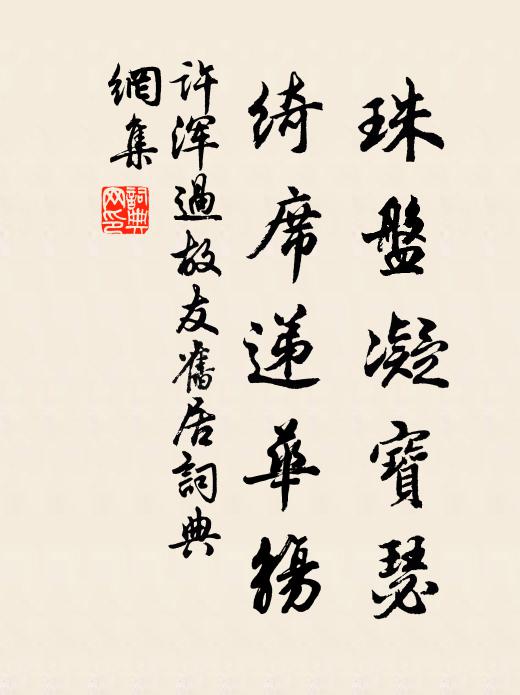 珠盤凝寶瑟
綺席遞華觴
許渾過故友舊居詞典
網集
詞典網印